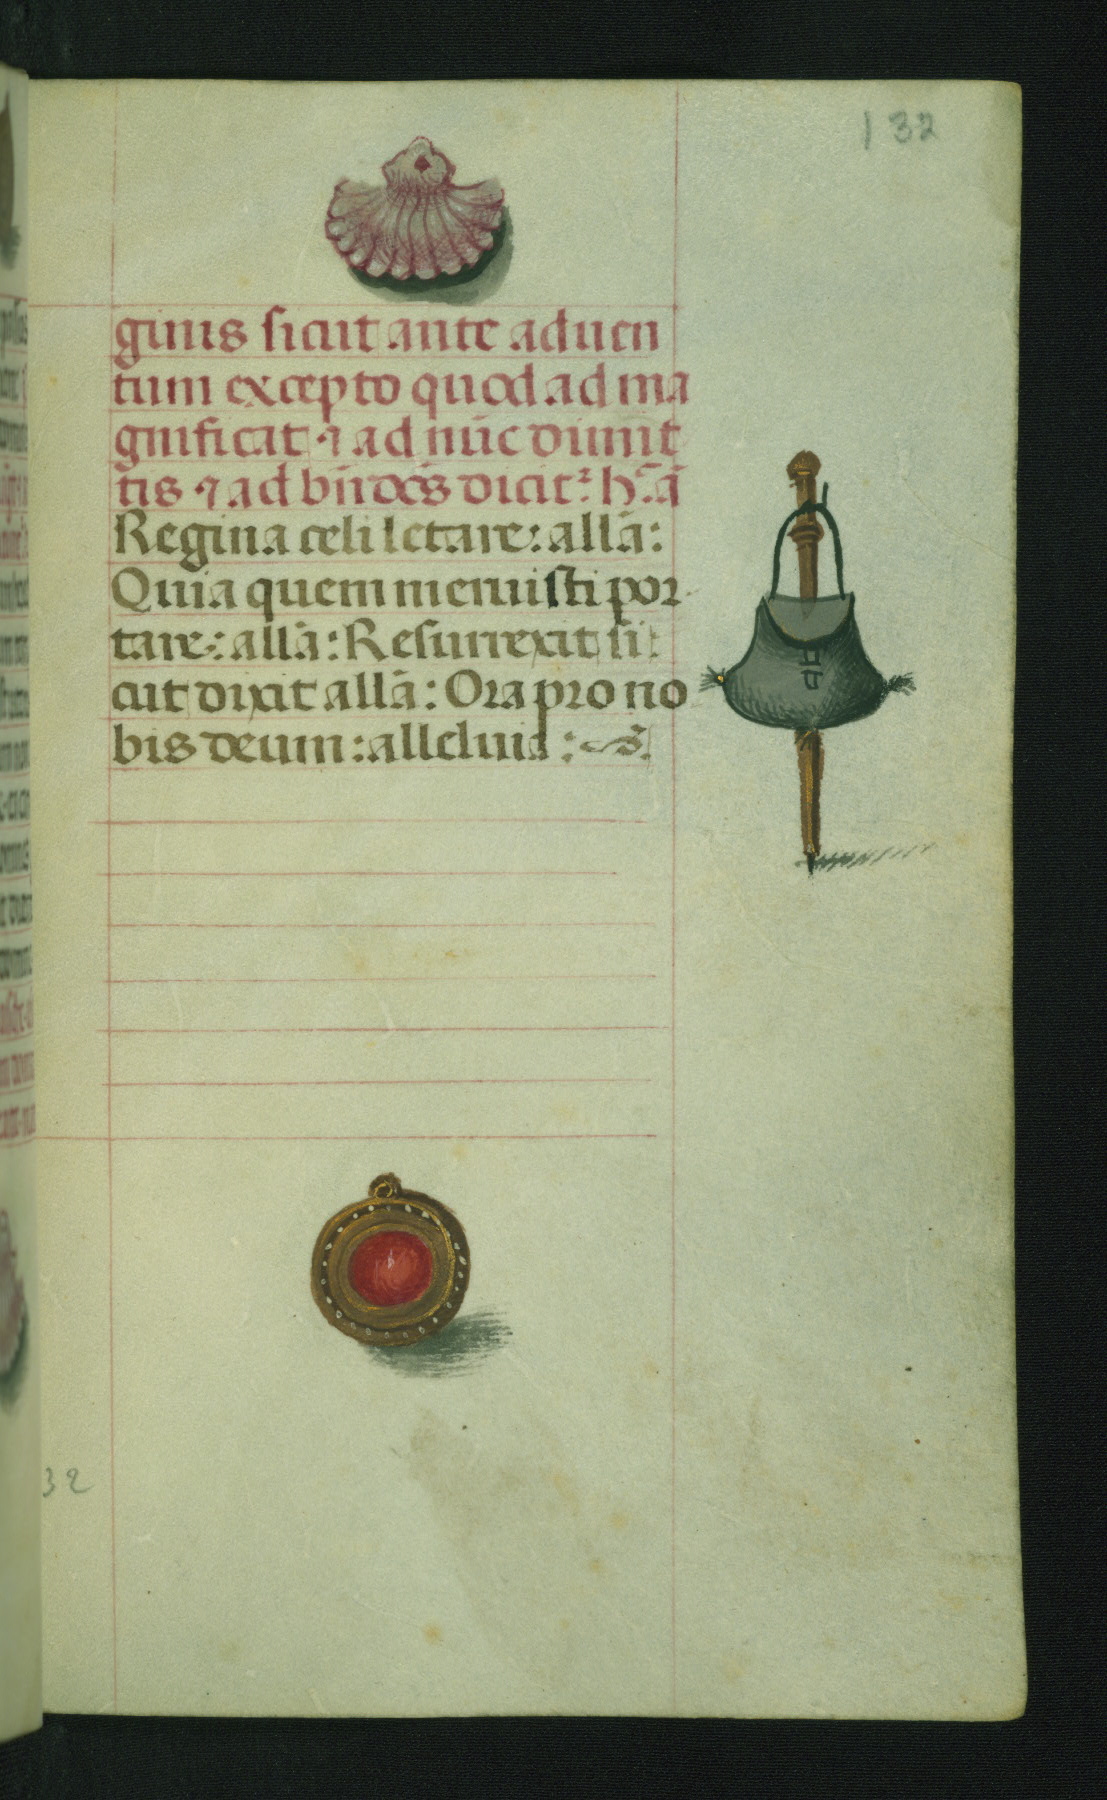 132
ginis sicut ante aduen
tum excepto quod ad ma
gnificat ⁊ ad nūc dimit
tis ⁊ ad bn̄dc̄s dicit᷑ hec an̄
Regina celi letare: allā:
Quia quem meruisti por-
tare: allā: Resurrexit si
cut dixit allā: Ora pro no
bis deum: alleluia:
32